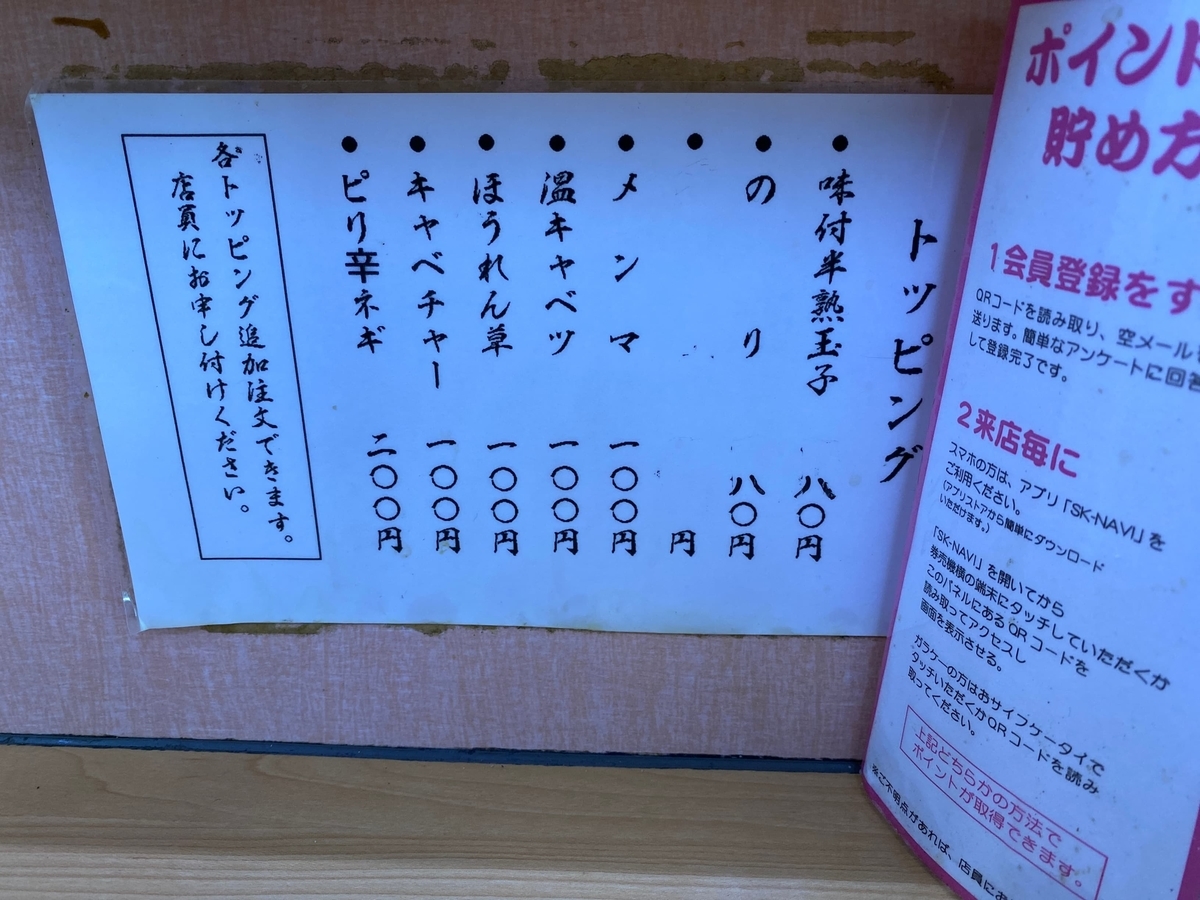 トッピング
● 味付半熟玉子 八〇円
● のり 八〇円
● 円
● メンマ 一〇〇円
● 温キャベツ 一〇〇円
● ほうれん草 一〇〇円
● キャベチャー 一〇〇円
● ピリ辛ネギ 二〇〇円
各トッピング追加注文できます。
店員にお申し付けください。
ポイント
貯め方
1会員登録をす
QRコードを読み取り、空メール
送ります。簡単なアンケートに回答
して登録完了です。
2来店毎に
スマホの方は、アプリ「SK-NAVI」を
ご利用ください。
(アプリストアから簡単にダウンロード
いただけます。)
「SK-NAVI」を開いてから
券売機横の端末にタッチしていただくか
このパネルにあるQRコードを
読み取ってアクセスし
画面を表示させる。
ガラケーの方はおサイフケータイで
タッチいただくかQRコードを読み
取ってください。
上記どちらかの方法で
ポイントが取得できます。
※ご不明点があれば、店員にお